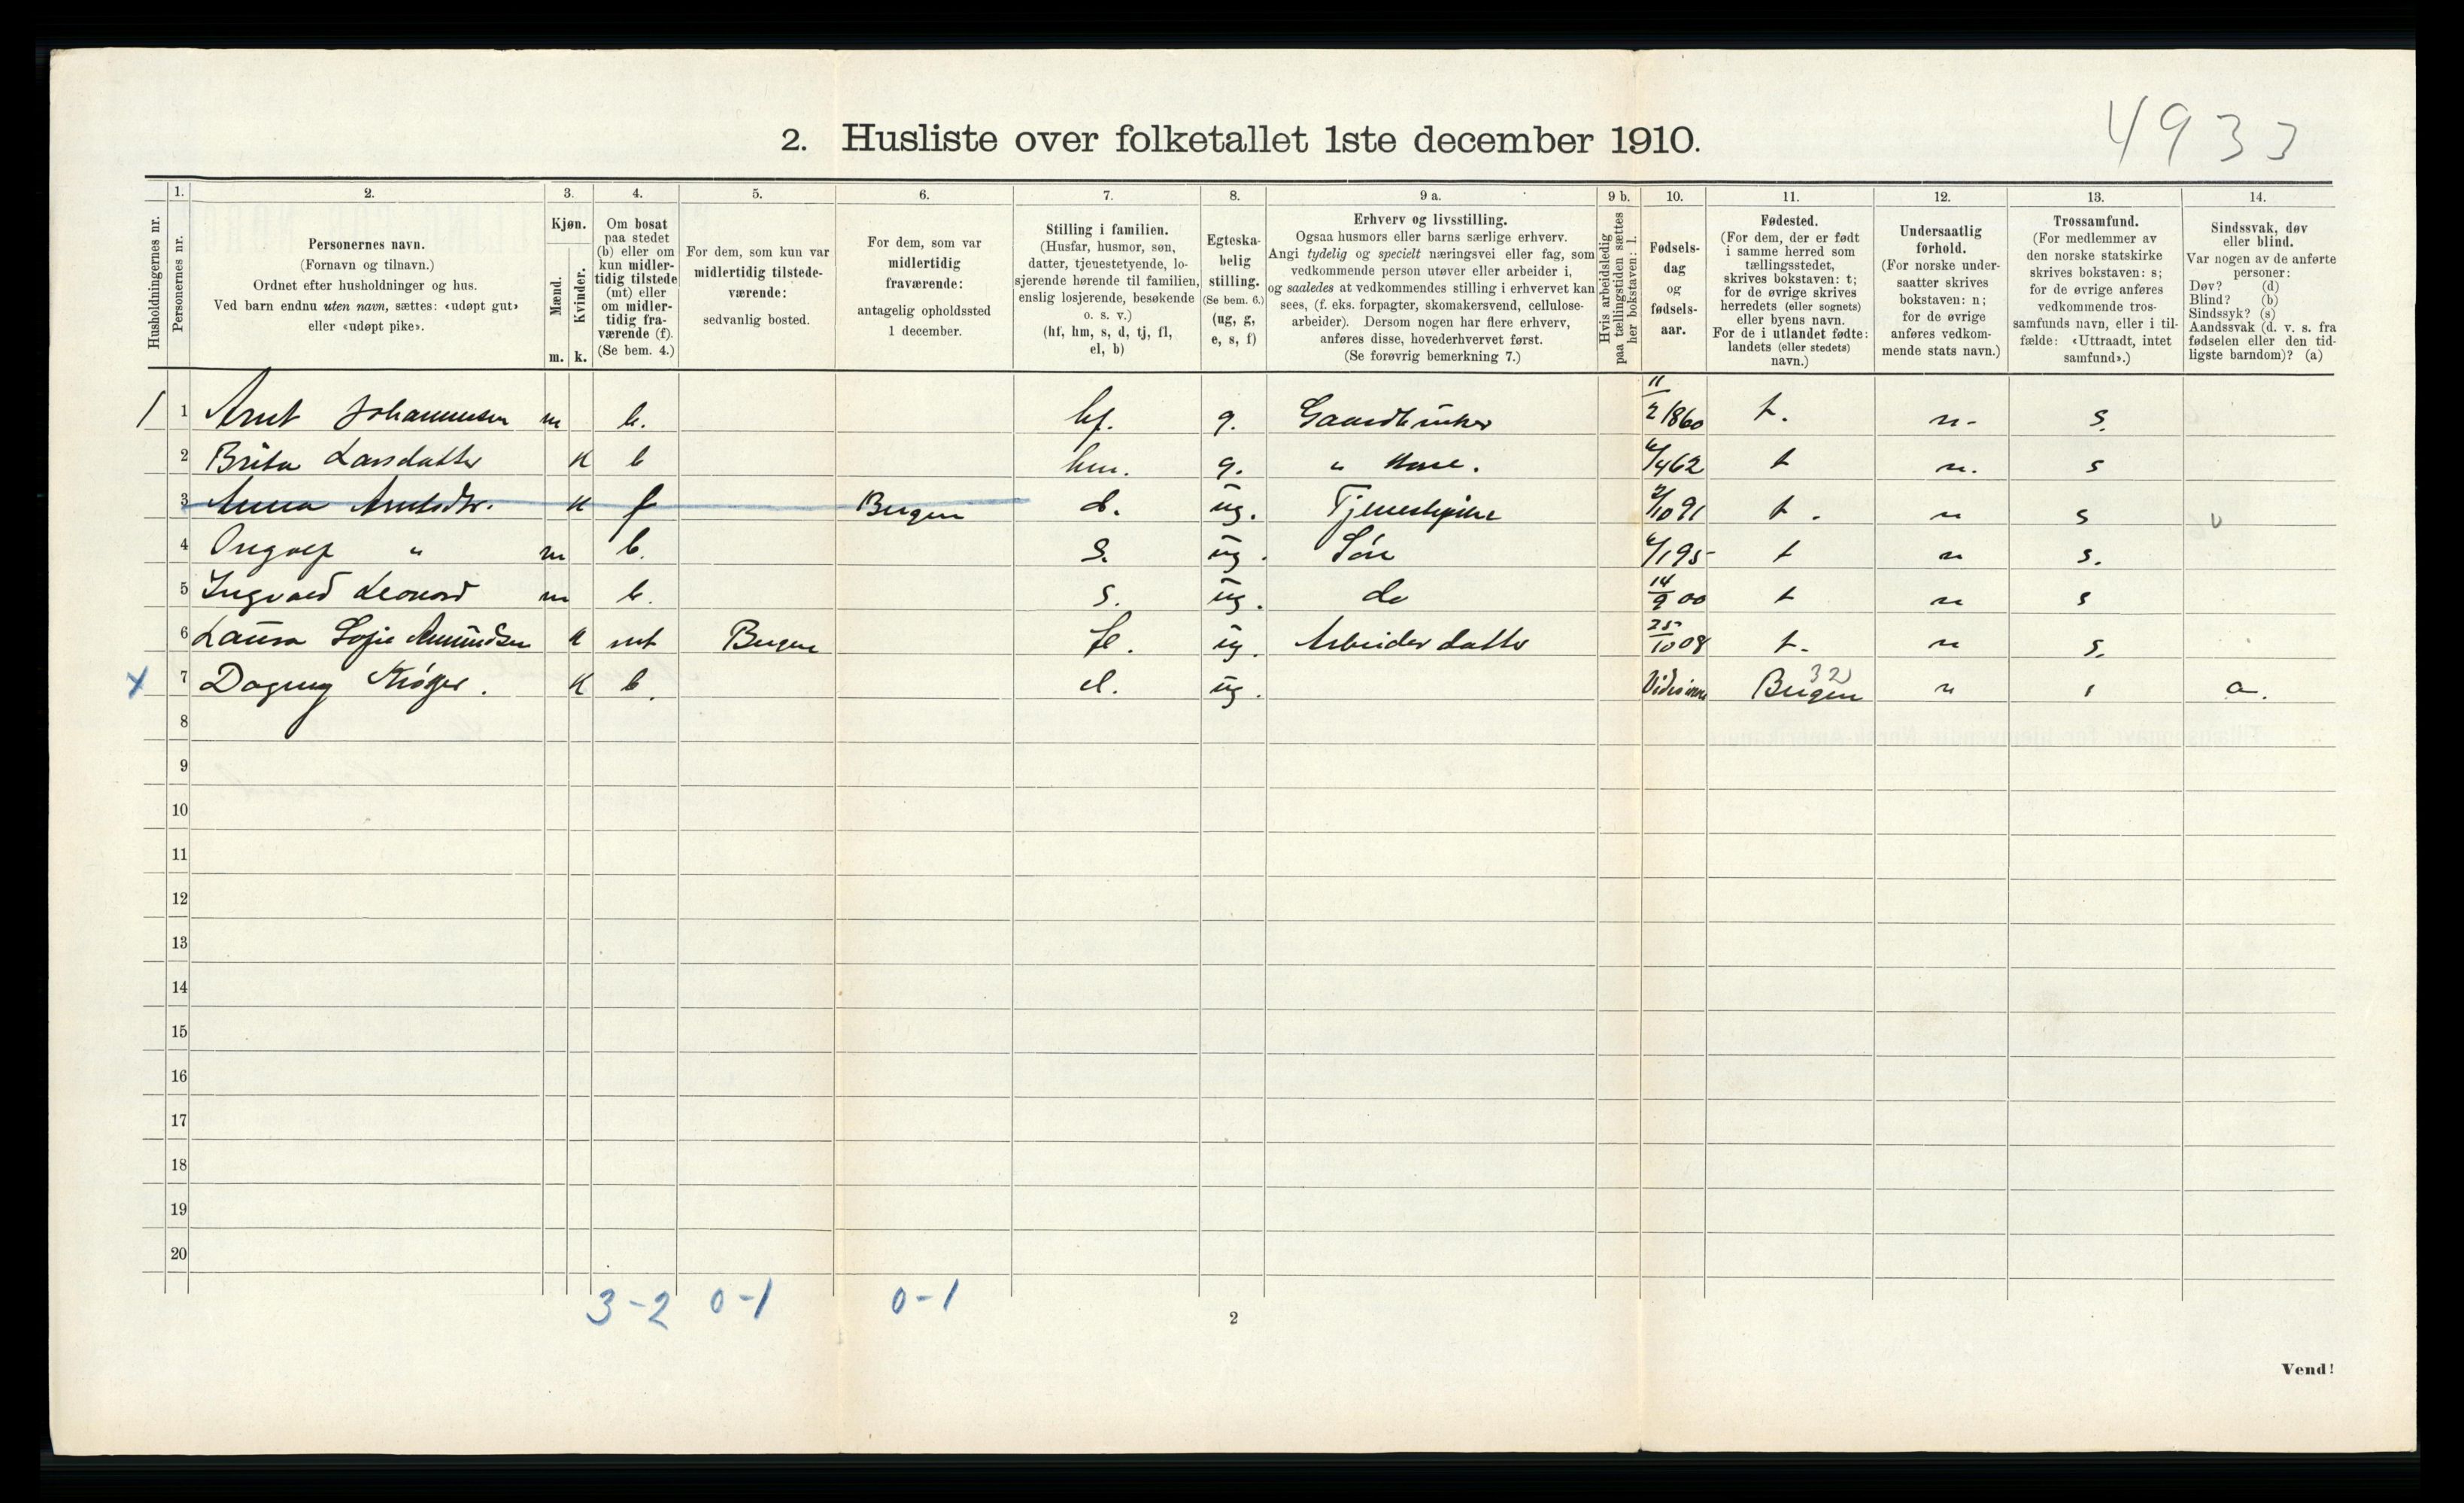 4933
2. Husliste over folketallet 1ste december 1910.
Husholdningernes nr.
1.
Personernes nr.
2.
Personernes navn.
(Fornavn og tilnavn.)
Ordnet efter husholdninger og hus.
Ved barn endnu uten navn, sættes: «udøpt gut»
eller «udøpt pike».
3.
Kjøn.
Mænd.
Kvinder.
m. k.
4.
Om bosat
paa stedet
(b) eller om
kun midler-
tidig tilstede
(mt) eller
om midler-
tidig fra-
værende (f).
(Se bem. 4.)
5.
For dem, som kun var
midlertidig tilstede-
værende:
sedvanlig bosted.
6.
For dem, som var
midlertidig
fraværende:
antagelig opholdssted
1 december.
7.
Stilling i familien.
(Husfar, husmor, søn,
datter, tjenestetyende, lo-
sjerende hørende til familien,
enslig losjerende, besøkende
o. s. v.)
(hf, hm, s, d, tj, fl,
el, b)
8.
Egteska-
belig
stilling.
(Se bem. 6.)
(ug, g,
e, s, f)
9 a.
Erhverv og livsstilling.
Ogsaa husmors eller barns særlige erhverv.
Angi tydelig og specielt næringsvei eller fag, som
vedkommende person utøver eller arbeider i,
og saaledes at vedkommendes stilling i erhvervet kan
sees, (f. eks. forpagter, skomakersvend, cellulose-
arbeider). Dersom nogen har flere erhverv,
anføres disse, hovederhvervet først.
(Se forøvrig bemerkning 7.)
9 b.
Hvis arbeidsledig
paa tællingstiden sættes
her bokstaven: l.
10.
Fødsels-
dag
og
fødsels-
aar.
11.
Fødested.
(For dem, der er født
i samme herred som
tællingsstedet,
skrives bokstaven: t;
for de øvrige skrives
herredets (eller sognets)
eller byens navn.
For de i utlandet fødte:
landets (eller stedets)
navn.)
12.
Undersaatlig
forhold.
(For norske under-
saatter skrives
bokstaven: n;
for de øvrige
anføres vedkom-
mende stats navn.)
13.
Trossamfund.
(For medlemmer av
den norske statskirke
skrives bokstaven: s;
for de øvrige anføres
vedkommende tros-
samfunds navn, eller i til-
fælde: «Uttraadt, intet
samfund».)
14.
Sindssvak, døv
eller blind.
Var nogen av de anførte
personer:
Døv? (d)
Blind? (b)
Sindssyk? (s)
Aandssvak (d. v. s. fra
fødselen eller den tid-
ligste barndom)? (a)
1 1 Arnt Johannesen m b. hf. g. Gaardbruker 11/2 1860 t. n. s.
2 Brita Larsdatter K b hm. g. " Kone. 6/4 62 t n. s
3 Anna Arntsdtr. K f Bergen d. ug. Tjenestepike 2/10 91 t. n s
4 Ingolf " m b. s. ug. Søn 6/1 95 t n s.
5 Ingvald Leonard m b. s. ug. do 14/9 00 t n s
6 Laura Sofie Amundsen K mt Bergen fl. ug. Arbeider datter 25/10 08 t. n s.
x 7 Dagny K b. el. ug. Bergen 32 n a.
8
9
10
11
12
13
14
15
16
17
18
19
20
3-2 0-1 0-1
2
Vend!